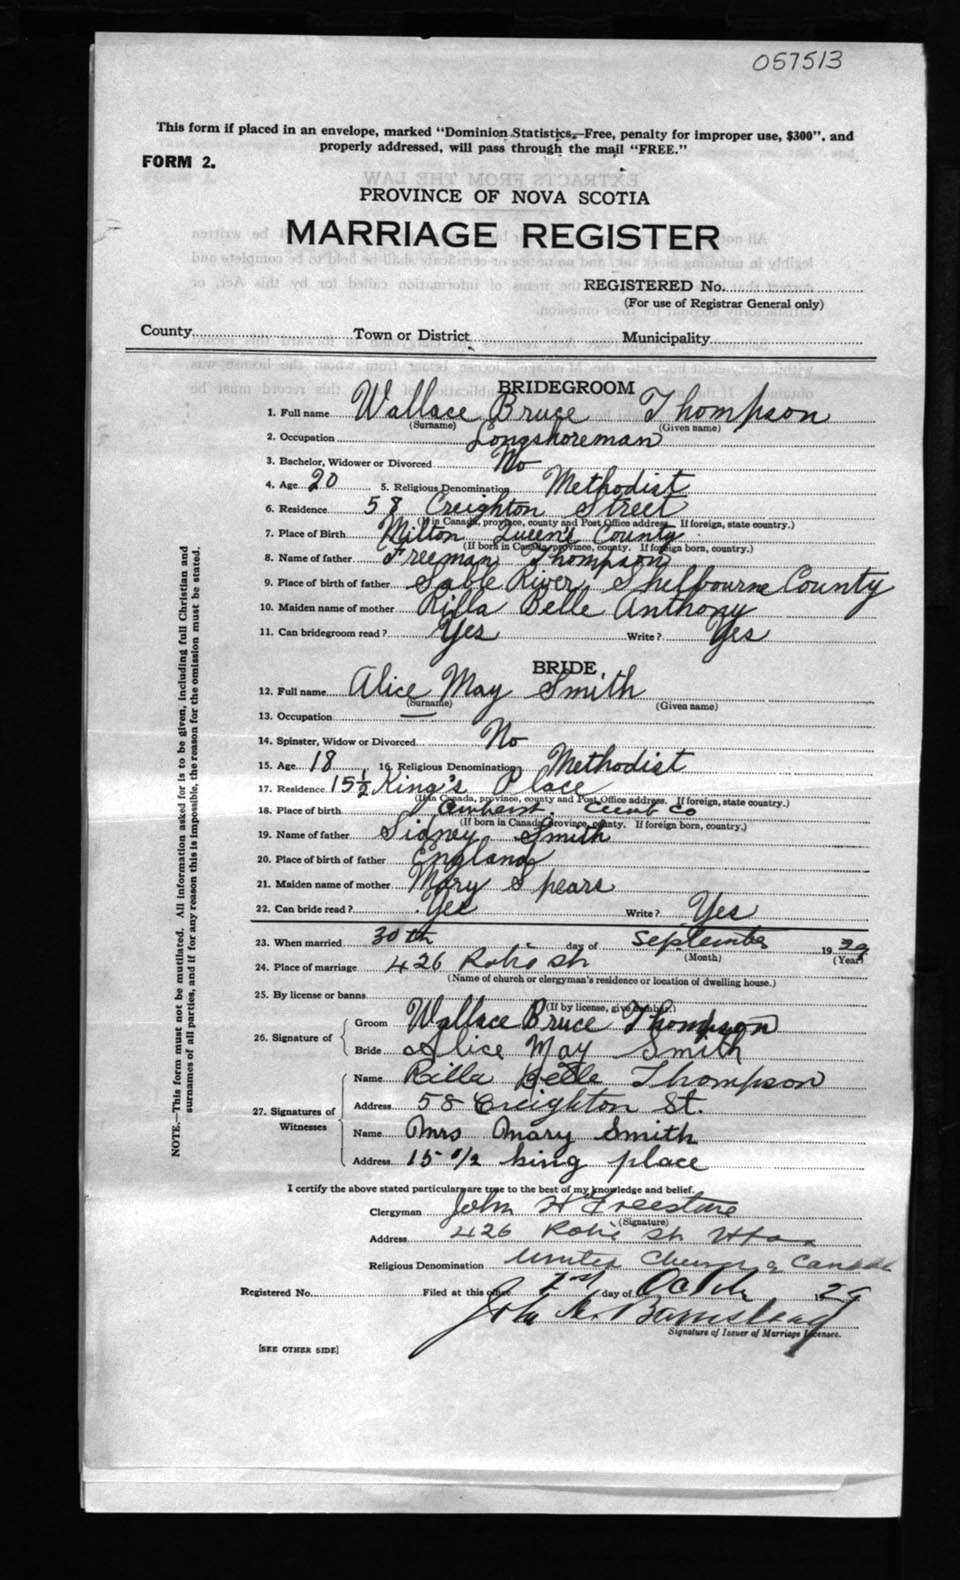 057513
This form if placed in an envelope, marked "Dominion Statistics,—Free, penalty for improper use, $300", and
properly addressed, will pass through the mail "FREE."
FORM 2.
PROVINCE OF NOVA SCOTIA
MARRIAGE REGISTER
REGISTERED No.
(For use of Registrar General only)
County Town or District Municipality
BRIDEGROOM
1. Full name Wallace Bruce Thompson
(Surname) (Given name)
2. Occupation Longshoreman
3. Bachelor, Widower or Divorced No
4. Age 20 5. Religious Denomination Methodist
6. Residence 58 Creighton Street
(If in Canada, province, county and Post Office address. If foreign, state country.)
7. Place of Birth Milton Queen's County
(If born in Canada, province, county. If foreign born, country.)
8. Name of father Freeman Thompson
9. Place of birth of father Sable River, Shelbourne County
10. Maiden name of mother Rilla Belle Anthony
11. Can bridegroom read? Yes Write? Yes
BRIDE
12. Full name Alice May Smith
(Surname) (Given name)
13. Occupation —
14. Spinster, Widow or Divorced No
15. Age 18 16. Religious Denomination Methodist
17. Residence 15½ King's Place
(If in Canada, province, county and Post Office address. If foreign, state country.)
18. Place of birth Amherst, Cumb Co
(If born in Canada, province, county. If foreign born, country.)
19. Name of father Sidney Smith
20. Place of birth of father England
21. Maiden name of mother Mary Spears
22. Can bride read? Yes Write? Yes
23. When married 30th day of September 1929
(Month) (Year)
24. Place of marriage 426 Robie St
(Name of church or clergyman's residence or location of dwelling house.)
25. By license or banns
(If by license, give number.)
26. Signature of Groom Wallace Bruce Thompson
Bride Alice May Smith
27. Signatures of Witnesses Name Rilla Belle Thompson
Address 58 Creighton St.
Name Mrs Mary Smith
Address 15 1/2 king place
I certify the above stated particulars are true to the best of my knowledge and belief.
Clergyman John H Freestone
(Signature)
Address 426 Robie St Hfax
Religious Denomination United Church of Canada
Registered No. Filed at this office 2nd day of Oct 1929
John A. Barnstead
Signature of Issuer of Marriage Licenses.
[SEE OTHER SIDE]
NOTE.—This form must not be mutilated. All information asked for is to be given, including full Christian and
surnames of all parties, and if for any reason this is impossible, the reason for the omission must be stated.